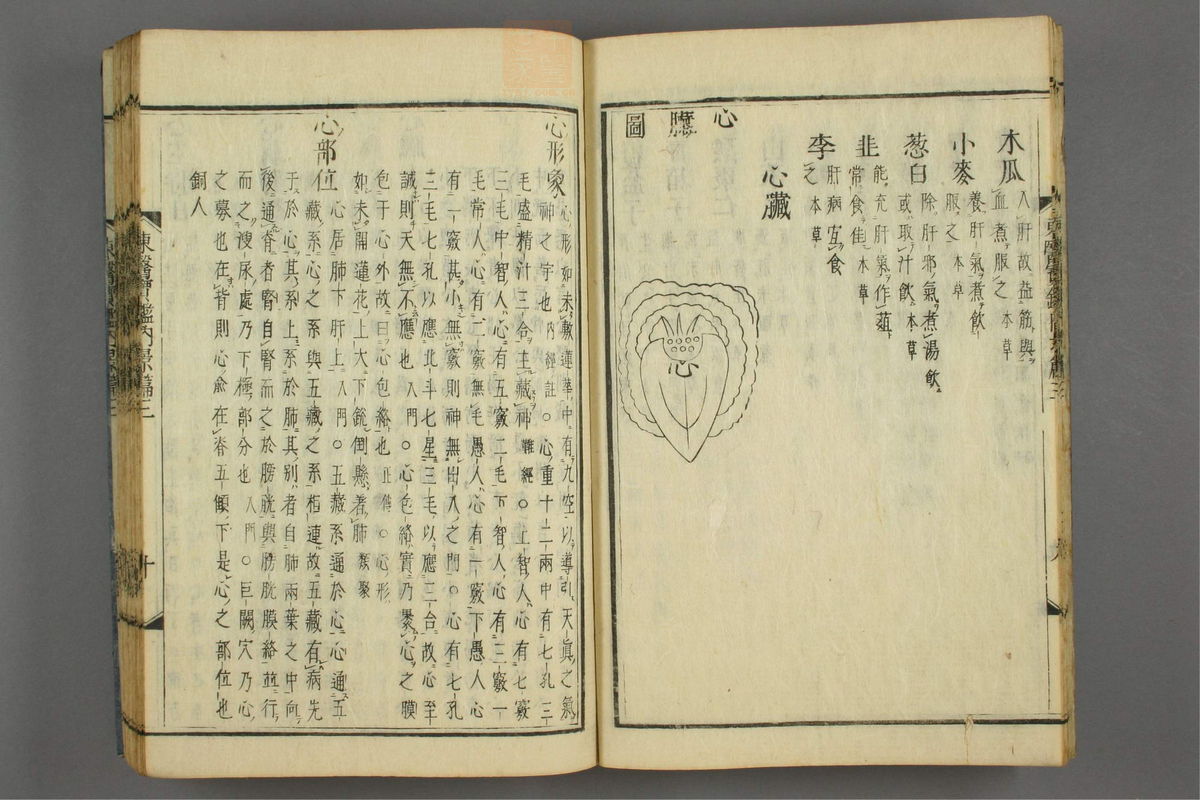 木瓜 入肝故益筋與
血煮服之 本草
小麥 養肝氣煮飲
服之 本草
葱白 除肝邪氣煮湯飲
或取汁飲 本草
韭 能充肝氣作葅
常食佳 本草
李 肝病宜食
之 本草
心臟
心臟圖
心
心形象 心形如未敷蓮華中有九空以導引天眞之氣
神之宇也 內經註 ○心重十二兩中有七孔三
毛盛精汁三合主藏神 難經 ○上智人心有七竅
三毛中智人心有五竅二毛下智人心有三竅一
毛常人心有二竅無毛愚人心有一竅下愚人心
有一竅甚小無竅則神無出入之門○心有七孔
三毛七孔以應北斗七星三毛以應三台故心至
誠則天無不應也 入門 ○心包絡實乃裹心之膜
包于心外故曰心包絡也 正傳 ○心形
如未開蓮花上大下銳倒懸著肺 類聚
心部位 心居肺下肝上 入門 ○五藏系通於心心通五
藏系心之系與五藏之系相連故五藏有病先
于於心其系上系於肺其別者自肺兩葉之中向
後通脊者腎自腎而之於膀胱與膀胱膜絡並行
而之溲尿處乃下極部分也 入門 ○巨闕穴乃心
之募也在背則心兪在脊五傾下是心之部位也
銅人
東醫寶鑑內景篇三
十